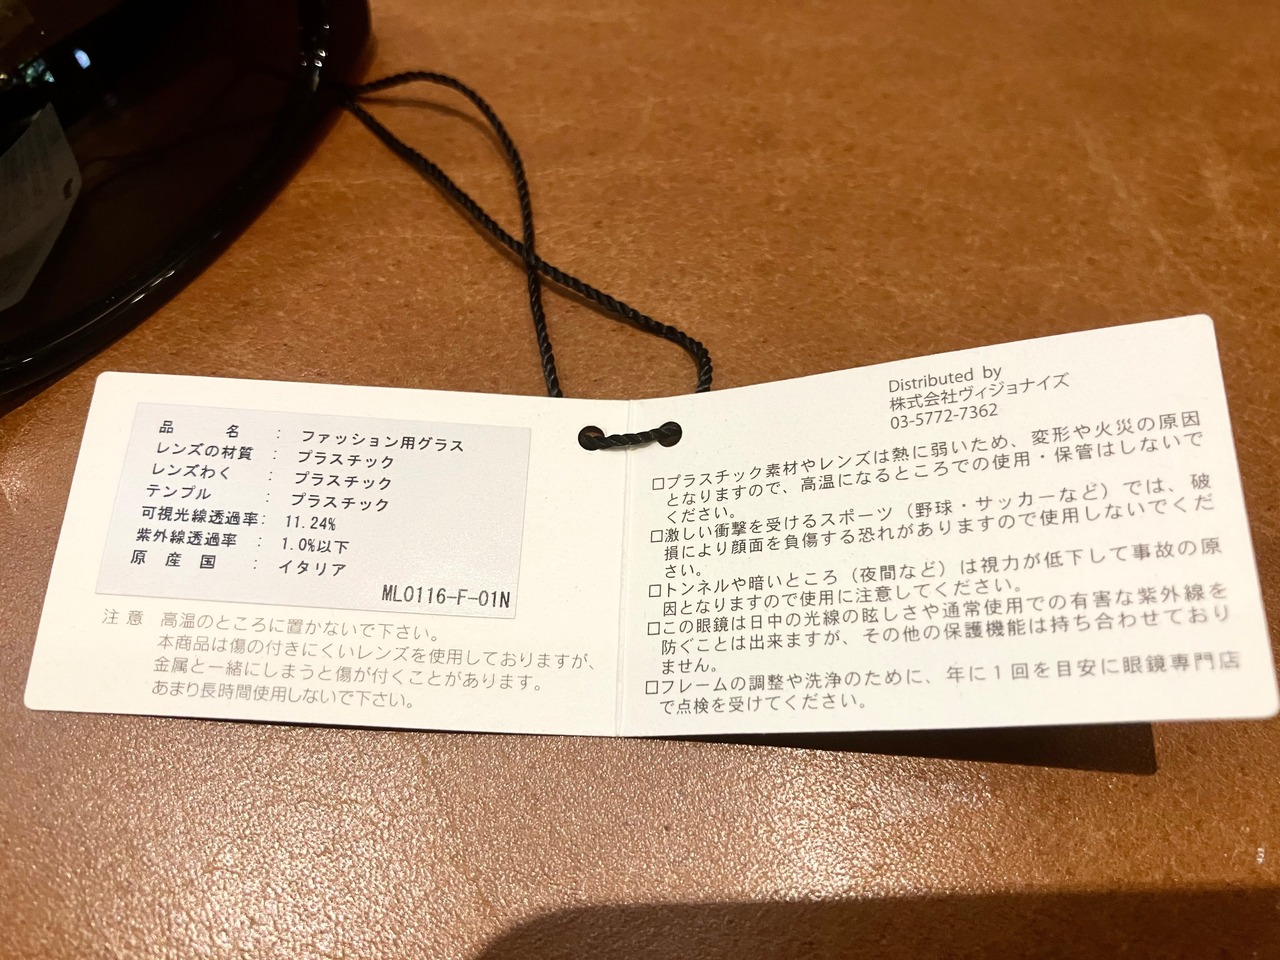 品　名 : ファッション用グラス
レンズの材質 : プラスチック
レンズわく : プラスチック
テンプル : プラスチック
可視光線透過率: 11.24%
紫外線透過率 : 1.0%以下
原 産 国 : イタリア
ML0116-F-01N
注 意 高温のところに置かないで下さい。
本商品は傷の付きにくいレンズを使用しておりますが、
金属と一緒にしまうと傷が付くことがあります。
あまり長時間使用しないで下さい。
Distributed by
株式会社ヴィジョナイズ
03-5772-7362
□プラスチック素材やレンズは熱に弱いため、変形や火災の原因
となりますので、高温になるところでの使用・保管はしないで
ください。
□激しい衝撃を受けるスポーツ（野球・サッカーなど）では、破
損により顔面を負傷する恐れがありますので使用しないでくだ
さい。
□トンネルや暗いところ（夜間など）は視力が低下して事故の原
因となりますので使用に注意してください。
□この眼鏡は日中の光線の眩しさや通常使用での有害な紫外線を
防ぐことは出来ますが、その他の保護機能は持ち合わせており
ません。
□フレームの調整や洗浄のために、年に1回を目安に眼鏡専門店
で点検を受けてください。